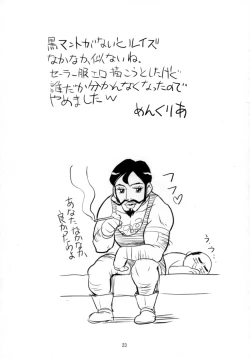 黒マントがないとルイズ
なかなか似ないね。
セーラー服エロ描こうとしたけど
誰だか分かんなくなったので
やめましたw
めんくりあ
あなた、なかなか
良かったわよ
うっ…
23